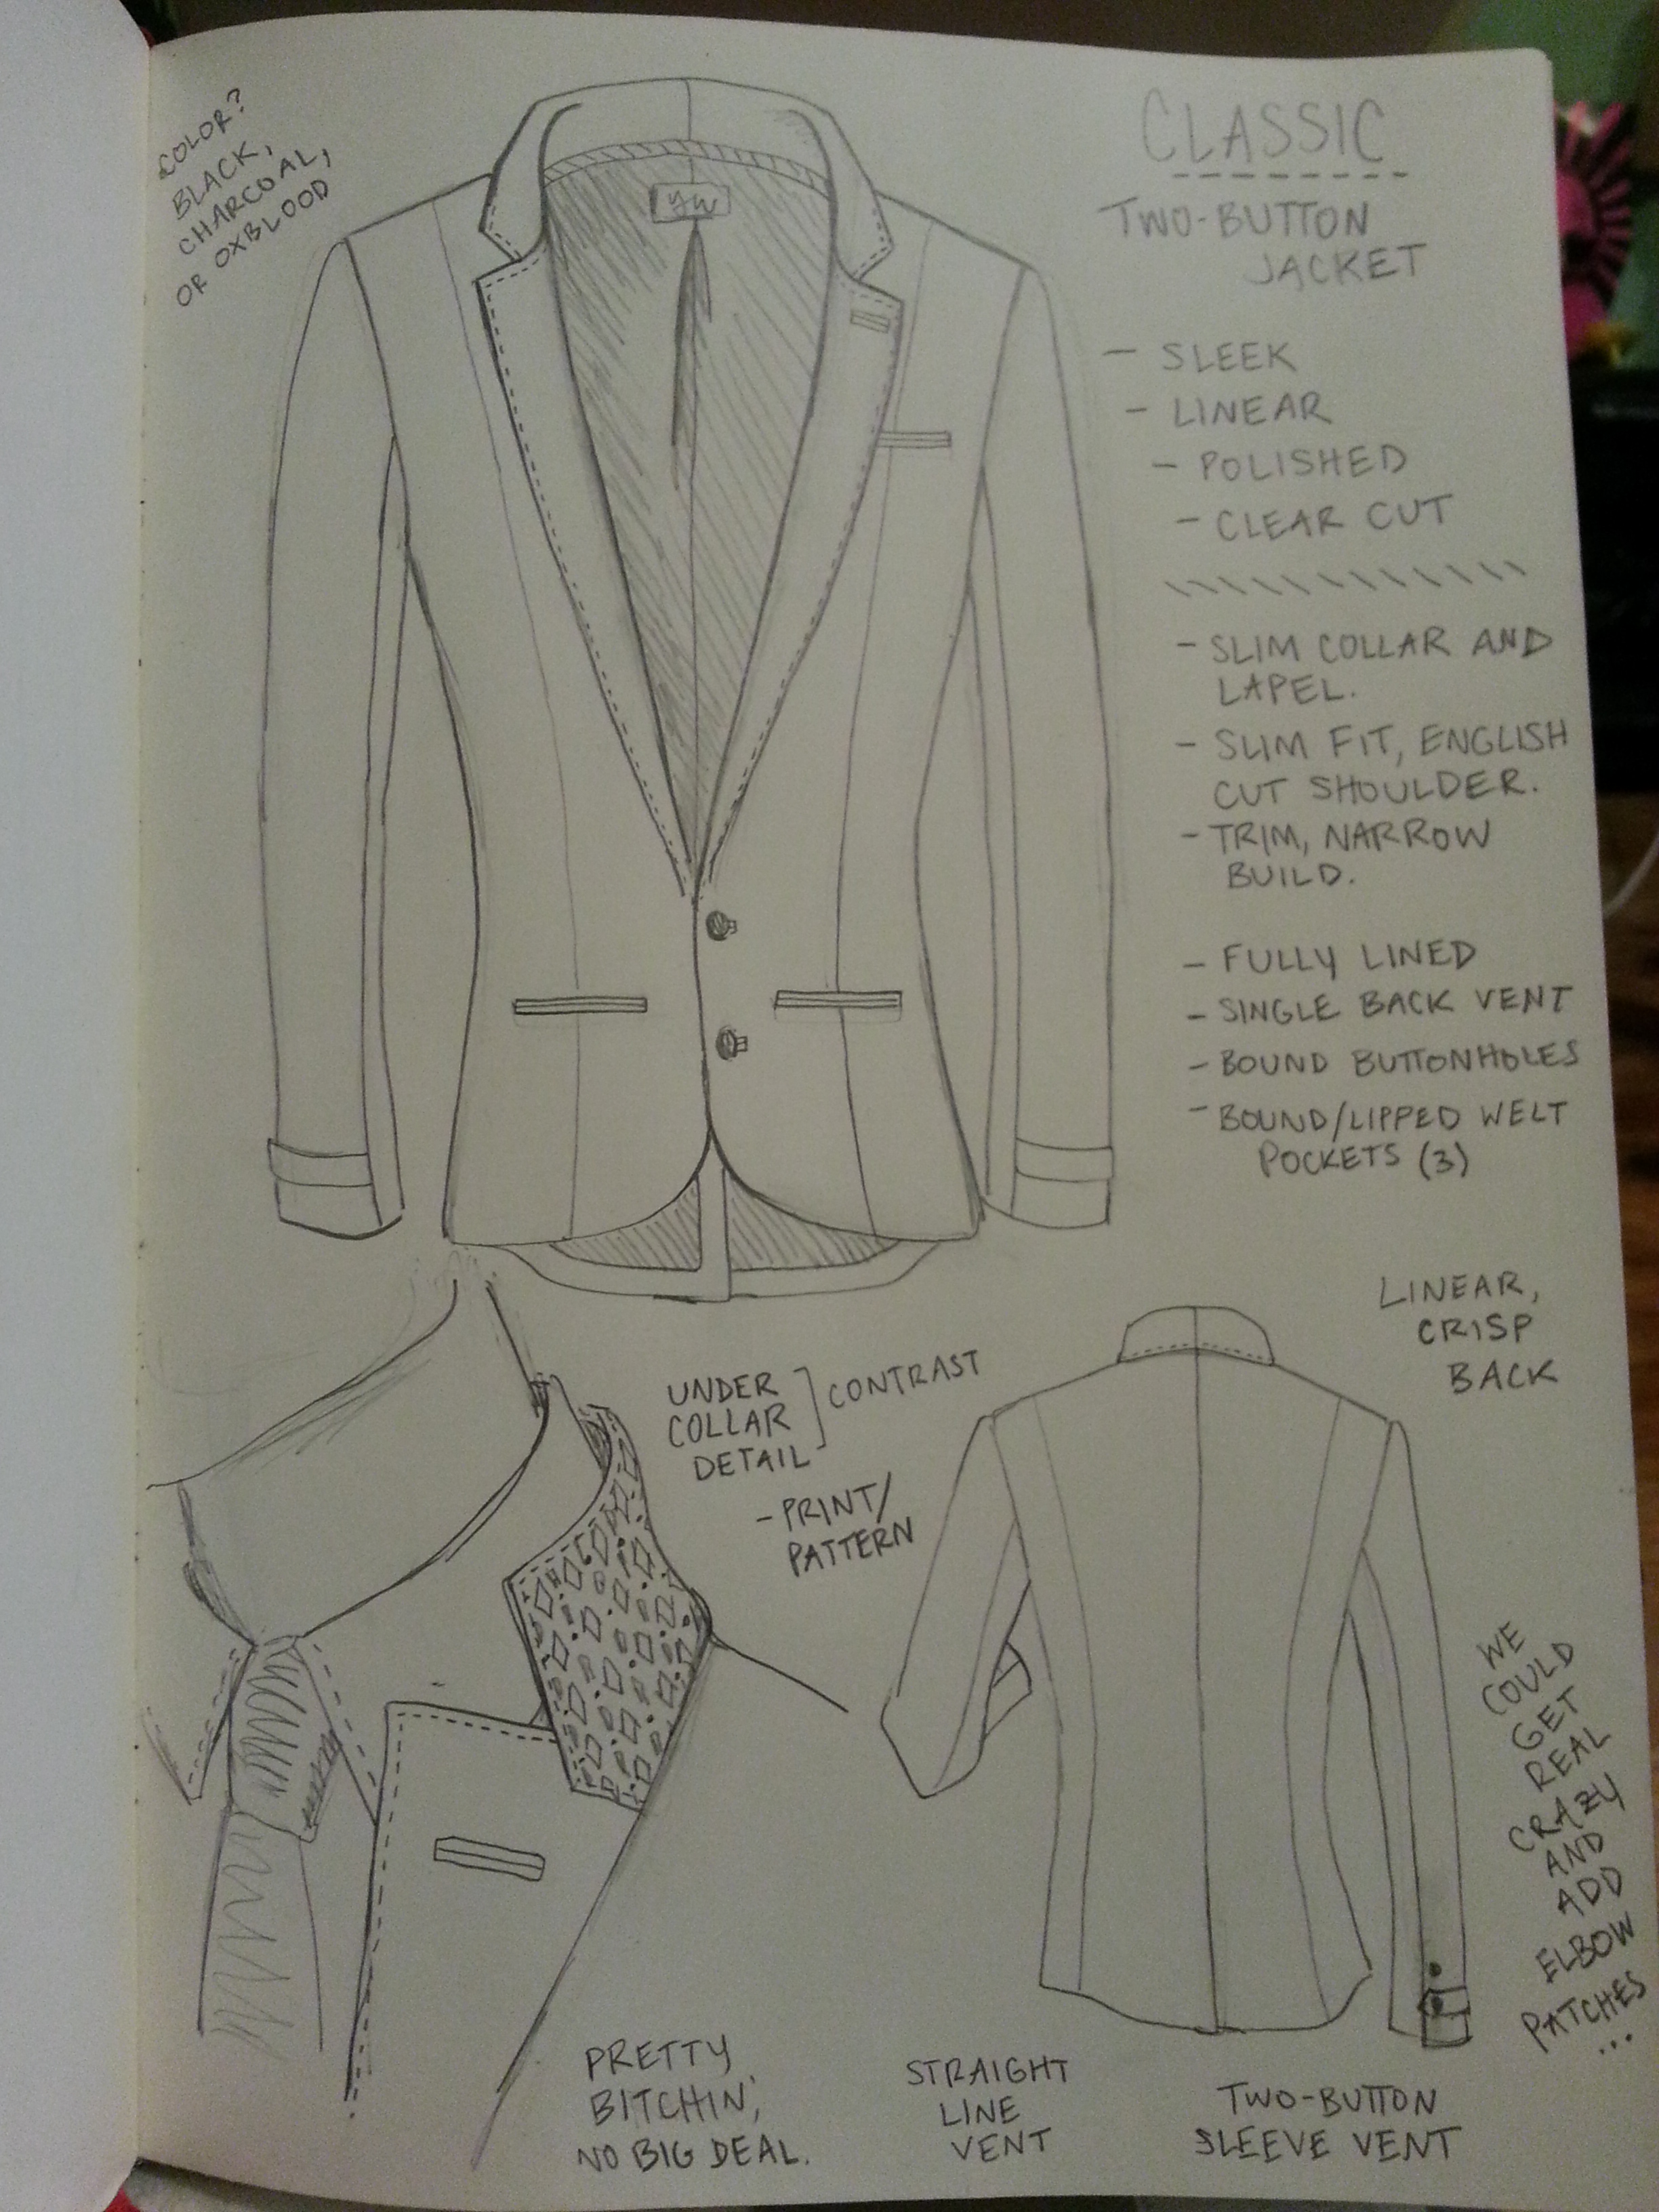 COLOR?
BLACK,
CHARCOAL,
OR OXBLOOD
yw
CLASSIC
TWO-BUTTON
JACKET
- SLEEK
- LINEAR
- POLISHED
- CLEAR CUT
- SLIM COLLAR AND
LAPEL.
- SLIM FIT, ENGLISH
CUT SHOULDER.
- TRIM, NARROW
BUILD.
- FULLY LINED
- SINGLE BACK VENT
- BOUND BUTTONHOLES
- BOUND/LIPPED WELT
POCKETS (3)
UNDER
COLLAR
DETAIL
] CONTRAST
- PRINT/
PATTERN
LINEAR,
CRISP
BACK
WE
COULD
GET
REAL
CRAZY
AND
ADD
ELBOW
PATCHES
...
PRETTY
BITCHIN',
NO BIG DEAL.
STRAIGHT
LINE
VENT
TWO-BUTTON
SLEEVE VENT